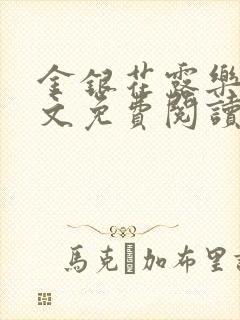 金銀花露樂
文免費閱讀
馬克 加布里